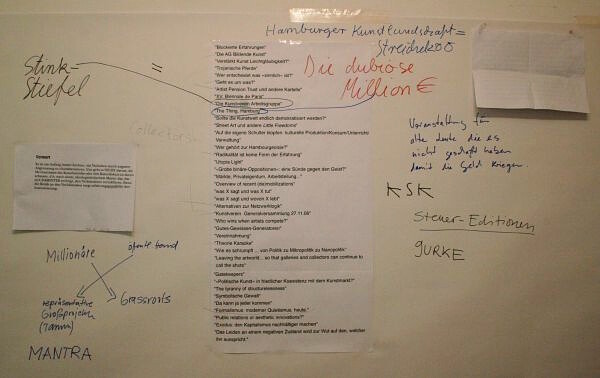 Hamburger Kunstlandschaft =
Streichelzoo
Stink-
Stiefel
=
Die dubiöse
Million €
"Blockierte Erfahrungen"
"Die AG Bildende Kunst"
"Verstärkt Kunst Leichtgläubigkeit?"
"Trojanische Pferde"
"Wer entscheidet was »sinnlich« ist?"
"Geht es um was?"
"Artist Pension Trust und andere Kartelle"
"XV. Biennale de Paris"
"Die Kunstverein Arbeitsgruppe"
"The Thing, Hamburg"
"Sollte die Kunstwelt endlich demokratisiert werden?"
"Street Art und andere Little Freedoms"
"Auf die eigene Schulter klopfen: kulturelle Produktion/Konsum/Unterrichts/
Verwaltung"
"Wer gehört zur Hamburgensie?"
"Radikalität ist keine Form der Erfahrung"
"Utopia Light"
"»Große binäre-Oppositionen«: eine Sünde gegen den Geist?"
"Märkte, Privateigentum, Arbeitsteilung..."
"Overview of recent (de)mobilizations"
"was X sagt und was X tut"
"was X sagt und wovon X lebt"
"Alternativen zur Netzwerklogik"
"Kunstverein Generalversammlung 27.11.08"
"Who wins when artists compete?"
"Gutes-Gewissen-Generatoren"
"Vereinnahmung"
"Theorie Karaoke"
"Wie es schrumpft ... von Politik zu Mikropolitik zu Nanopolitik"
"Leaving the artworld ... so that galleries and collectors can continue to
call the shots"
"Gatekeepers"
"»Politische Kunst« in friedlicher Koexistenz mit dem Kunstmarkt?"
"The tyranny of structurelessness"
"Symbolische Gewalt"
"Da kann ja jeder kommen"
"Formalismus: moderner Quietismus, heute."
"Public relations or aesthetic innovations?"
"Exodus: den Kapitalismus nachhaltiger machen"
"Das Leiden an einem negativen Zustand wird zur Wut auf den, welcher
ihn ausspricht."
Collectors
Veranstaltung für
alte Leute die es
nicht geschafft haben
damit die Geld kriegen.
KSK
Steuer-Editionen
GURKE
Millionäre
repräsentative
Großprojekte
Grassroots
MANTRA